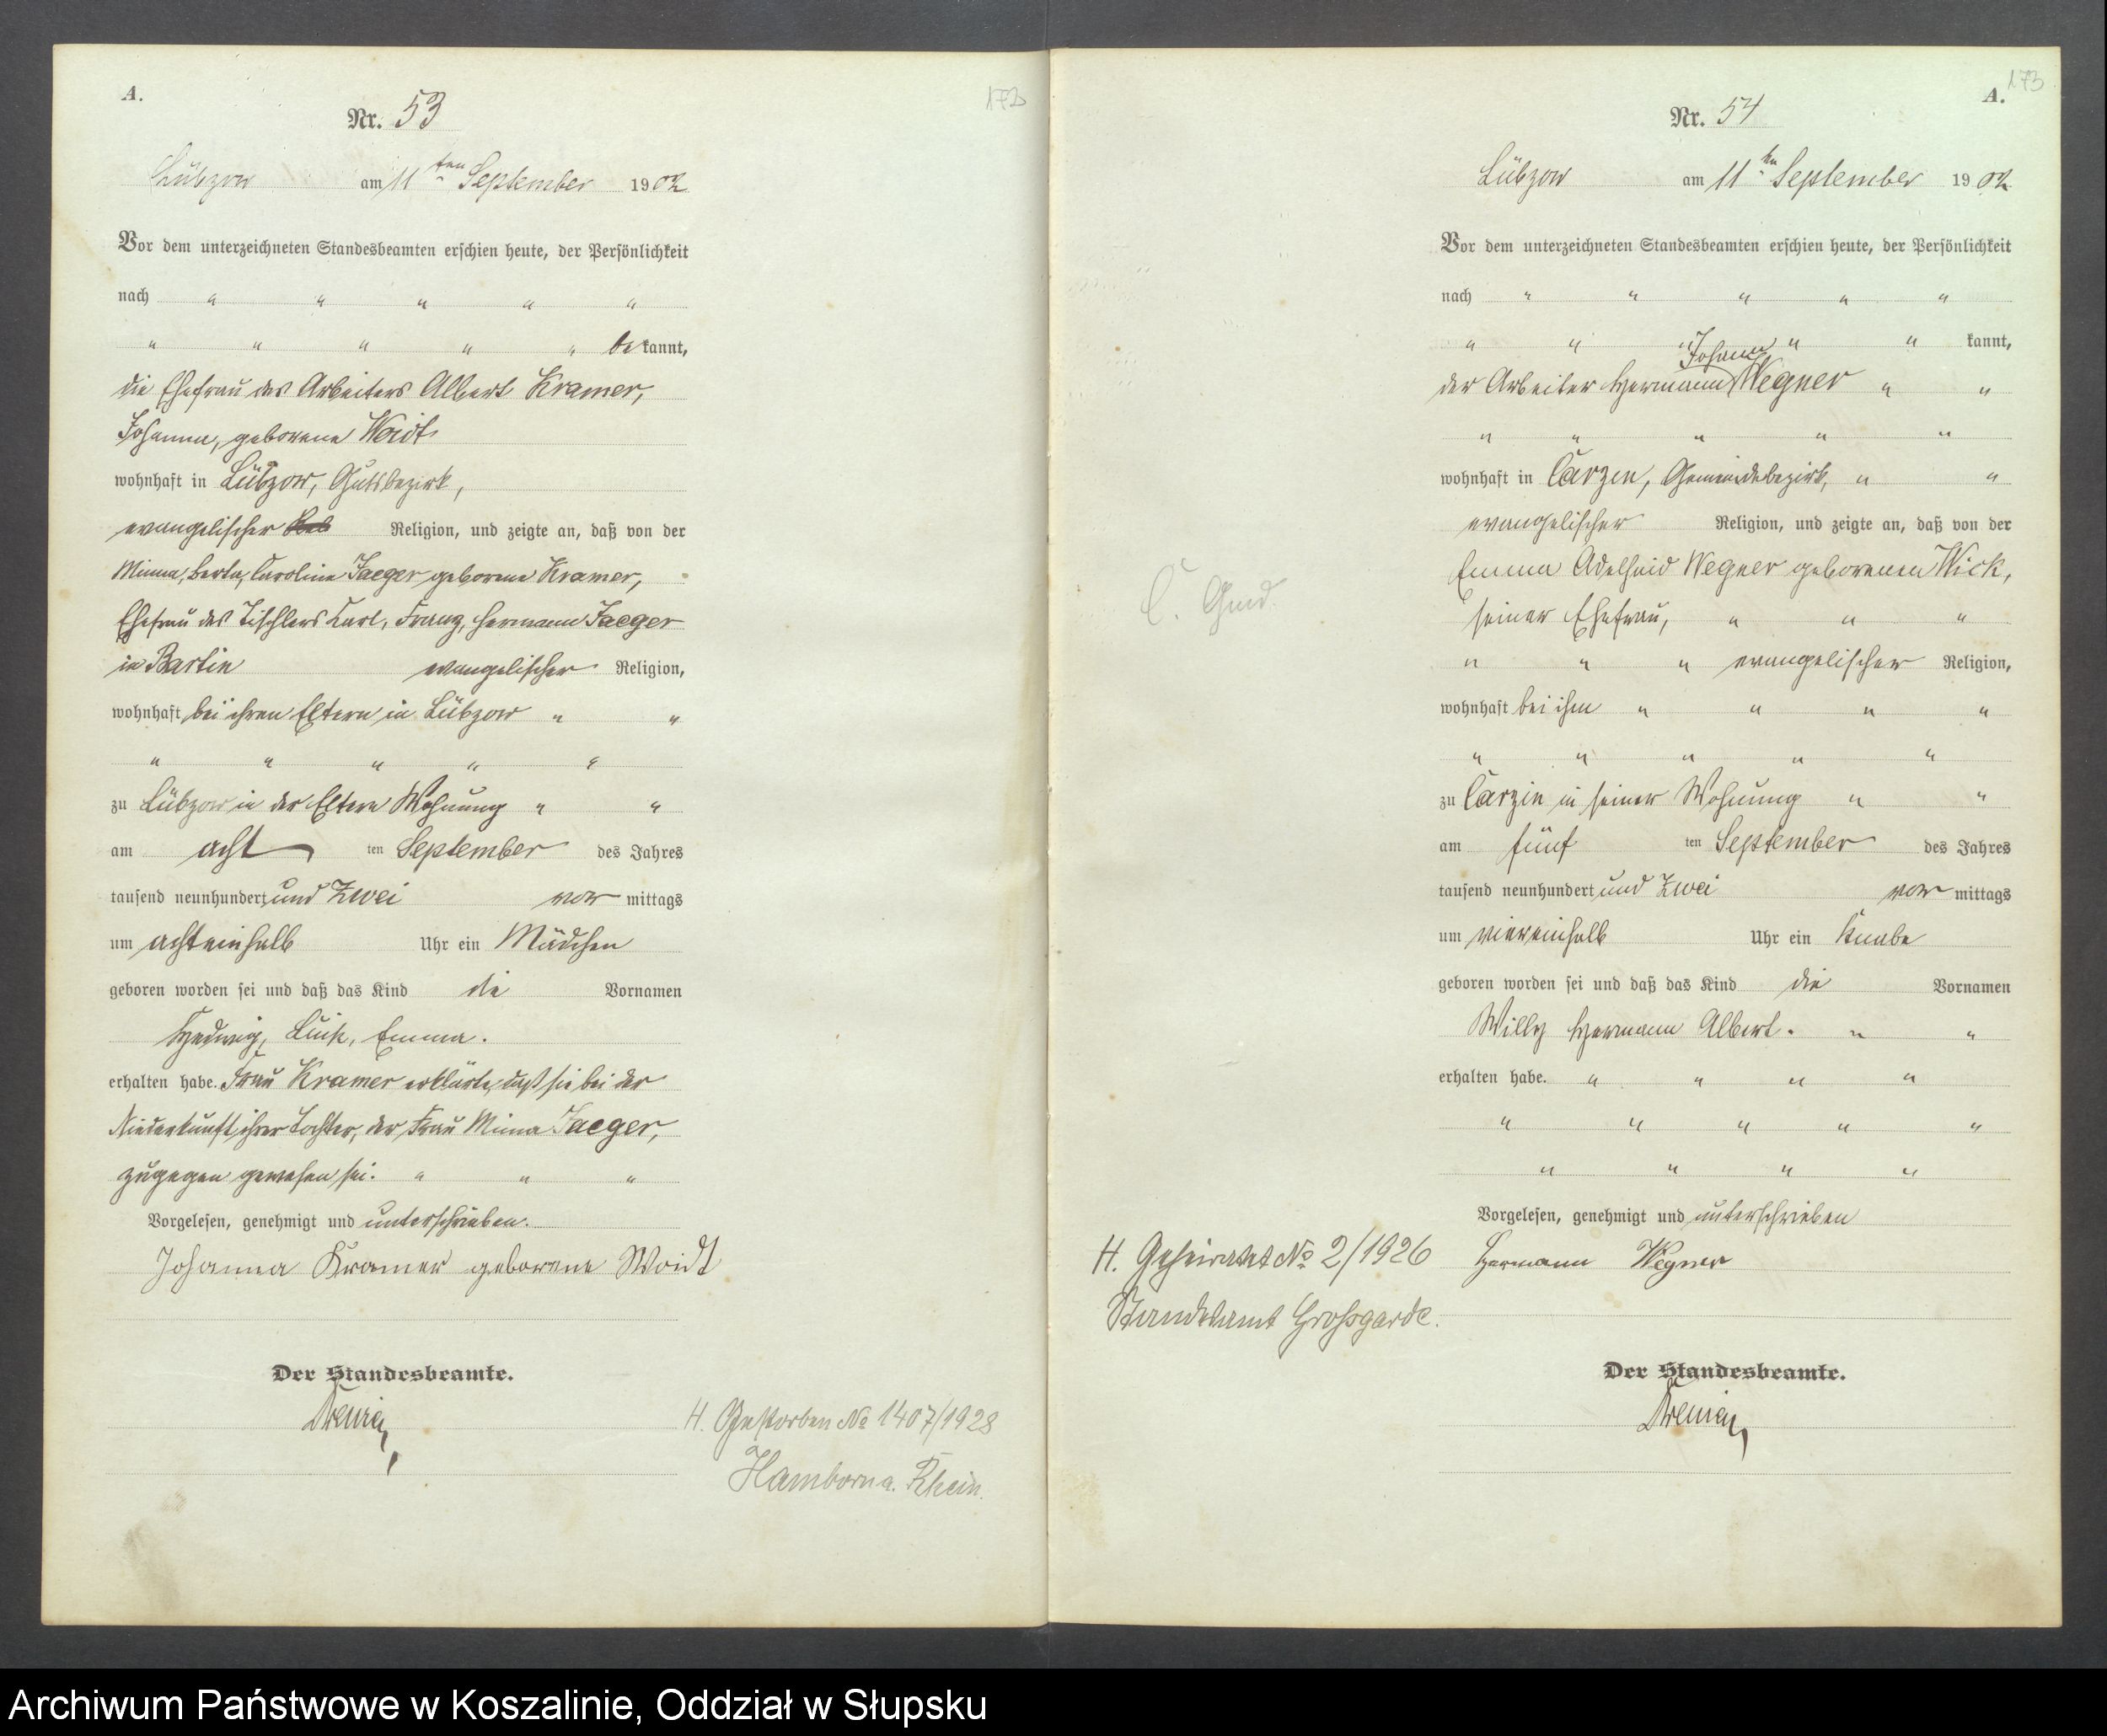 A.
172
Nr. 53
Lübzow am 11ten September 1902
Vor dem unterzeichneten Standesbeamten erschien heute, der Persönlichkeit
nach " " " " "
" " " " " bekannt,
die Ehefrau des Arbeiters Albert Kramer,
Johanna, geborene Woidt
wohnhaft in Lübzow, Gutsbezirk,
evangelischer Religion, und zeigte an, daß von der
Minna, Berta, Caroline Jaeger geborene Kramer,
Ehefrau des Tischlers Karl, Franz, Hermann Jaeger
in Bartin evangelischer Religion,
wohnhaft bei ihren Eltern in Lübzow " "
" " " " "
zu Lübzow in der Eltern Wohnung " "
am acht ten September des Jahres
tausend neunhundert und zwei vor mittags
um achteinhalb Uhr ein Mädchen
geboren worden sei und daß das Kind die Vornamen
Hedwig, Luise, Emma.
erhalten habe. Frau Kramer erklärte, daß sie bei der
Niederkunft ihrer Tochter, der Frau Minna Jaeger,
zugegen gewesen sei. " " "
Vorgelesen, genehmigt und unterschrieben.
Johanna Kramer geborene Woidt
Der Standesbeamte.
H. Gestorben No 1407/1928
Hamborn a. Rhein.
173
A.
Nr. 54
Lübzow am 11ten September 1902
Vor dem unterzeichneten Standesbeamten erschien heute, der Persönlichkeit
nach " " " " "
" " " " " kannt,
Johann
der Arbeiter Hermann Wegner " "
" " " " "
wohnhaft in Carzin, Gemeindebezirk, " "
evangelischer Religion, und zeigte an, daß von der
Emma Adelheid Wegner geborenen Wick,
seiner Ehefrau, " " "
" " " evangelischer Religion,
wohnhaft bei ihm " " " "
" " " " "
zu Carzin in seiner Wohnung " "
am fünf ten September des Jahres
tausend neunhundert und zwei vor mittags
um viereinhalb Uhr ein Knabe
geboren worden sei und daß das Kind die Vornamen
Willy Hermann Albert. " "
erhalten habe. " " " "
" " " " "
" " " "
Vorgelesen, genehmigt und unterschrieben
Hermann Wegner
Der Standesbeamte.
H. Geheiratet No 2/1926
Standesamt Großgarde.
Archiwum Państwowe w Koszalinie, Oddział w Słupsku